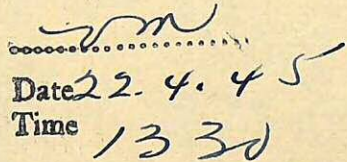 Date 22.4.45
Time 1330